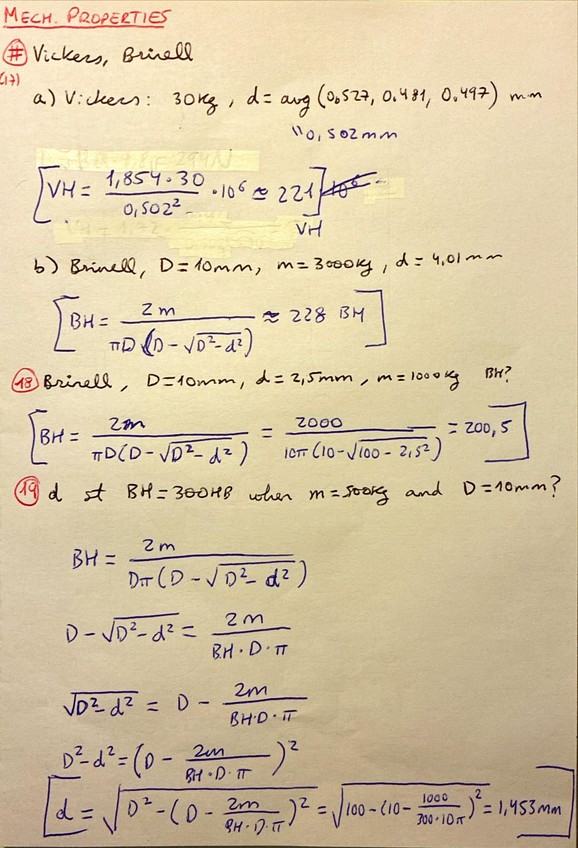 MECH. PROPERTIES
# Vickers, Brinell
(17)
a) Vickers: 30kg, d = avg (0,527, 0.481, 0.497) mm
"0,502mm
[VH = 1,854·30 / 0,502² · 10⁶ ≈ 221] 10⁶
VH
b) Brinell, D=10mm, m=3000kg, d=4,01mm
[BH = 2m / πD(D-√D²-d²) ≈ 228 BH]
18 Brinell, D=10mm, d=2,5mm, m=1000kg BH?
[BH = 2m / πD(D-√D²-d²) = 2000 / 10π(10-√100-2,5²) = 200,5]
19 d st BH=300HB when m=500kg and D=10mm?
BH = 2m / Dπ(D-√D²-d²)
D-√D²-d² = 2m / BH·D·π
√D²-d² = D - 2m / BH·D·π
D²-d² = (D - 2m / BH·D·π)²
[d = √D²-(D - 2m / BH·D·π)² = √100-(10 - 1000 / 300·10π)² = 1,453mm]